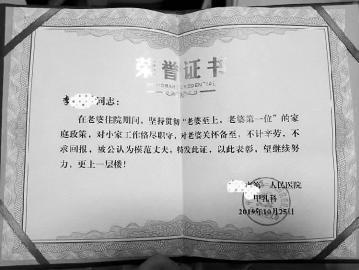 荣誉证书
李 同志:
在老婆住院期间,坚持贯彻“老婆至上,老婆第一位”的家
庭政策,对小家工作恪尽职守,对老婆关怀备至,不计辛劳,不
求回报,被公认为模范丈夫,特发此证,以此表彰,望继续努
力,更上一层楼!
第一人民医院
甲乳科
2019年10月25日